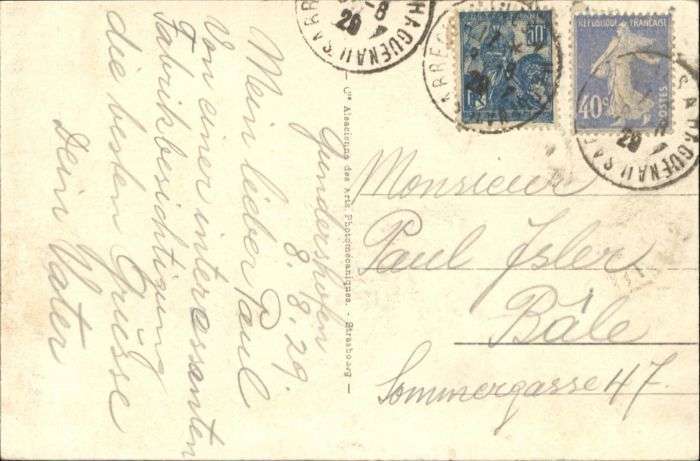 Gundershofen
8. 8. 29.
Mein lieber Paul
Von einer interessanten
Fabrikbesichtigung
die besten Grüsse
Dein Vater
Cie Alsacienne des Arts Photomécaniques. - Strasbourg
50c
REPUBLIQUE FRANÇAISE
40c
POSTES
HAGUENAU
29
HAGUENAU
29
Monsieur
Paul Isler
Bâle
Sommergasse 47.